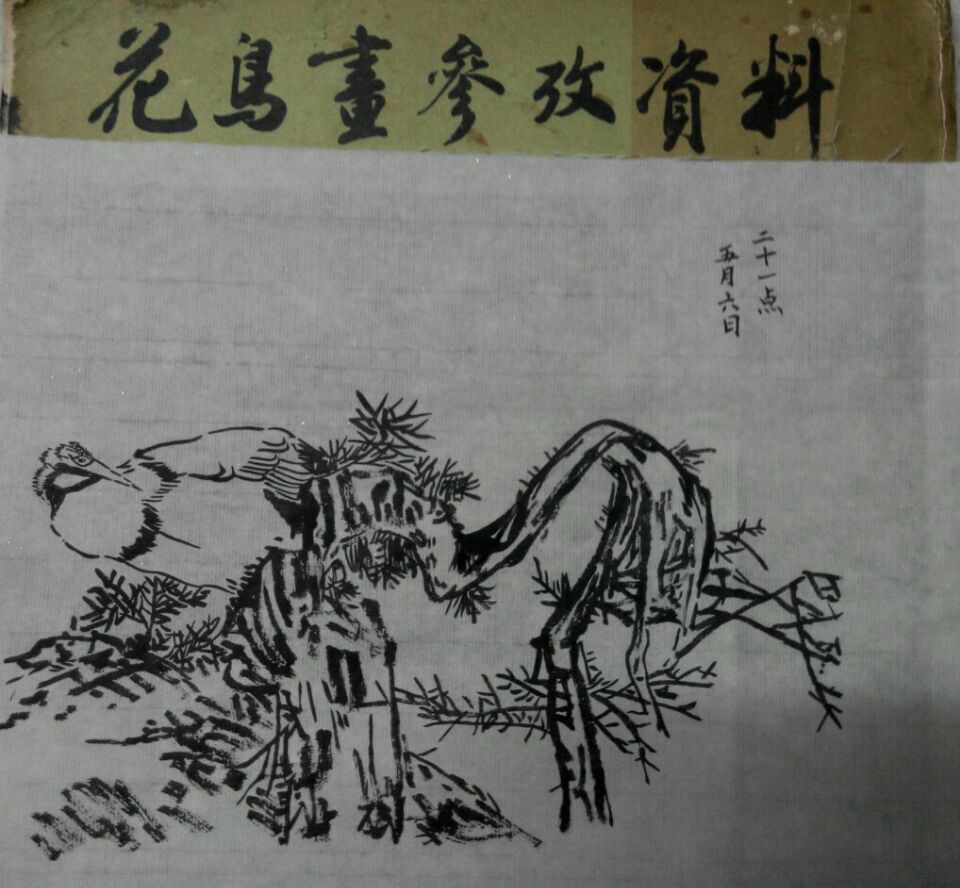 花鳥畫參攷資料
二十一点
五月六日